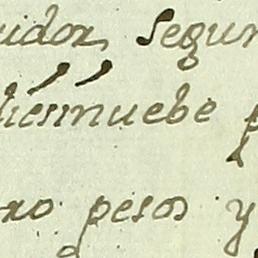 uidor, segun
diesnuebe p
ro pesos y